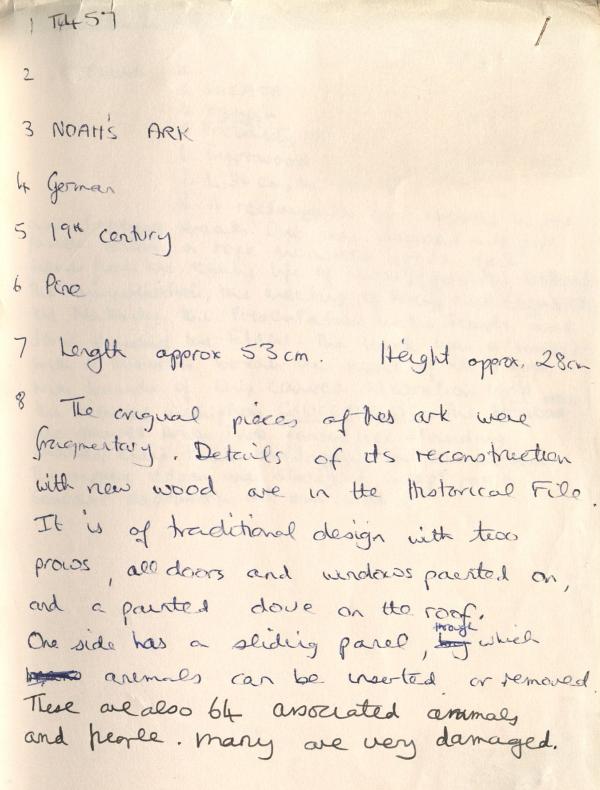 1 T4457
2
3 NOAH'S ARK
4 German
5 19th century
6 Pine
7 Length approx 53cm. Height approx. 28cm
8 The original pieces of this ark were
fragmentary. Details of its reconstruction
with new wood are in the Historical File.
It is of traditional design with two
prows, all doors and windows painted on,
and a painted dove on the roof.
One side has a sliding panel, through which
animals can be inserted or removed.
There are also 64 associated animals
and people. Many are very damaged.